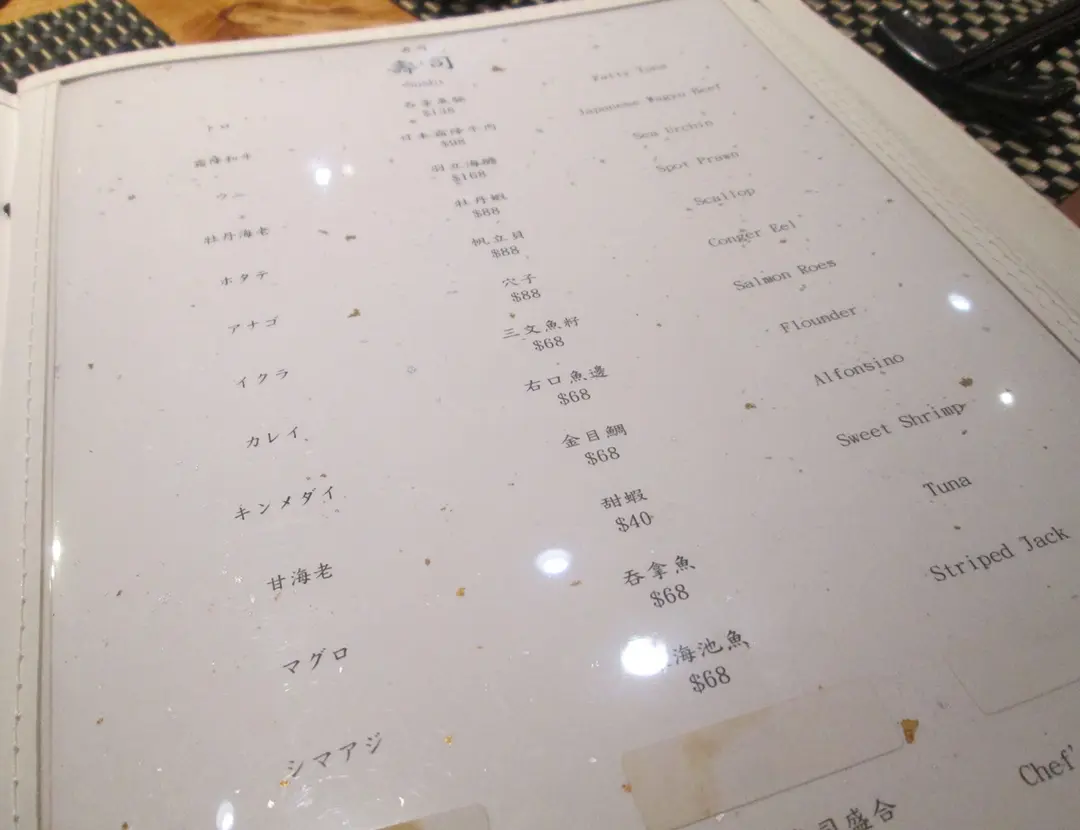 寿司
壽司
Sushi
トロ 吞拿魚腩 Fatty Tuna
$138
霜降和牛 日本霜降牛肉 Japanese Wagyu Beef
$98
ウニ 羽立海膽 Sea Urchin
$168
牡丹海老 牡丹蝦 Spot Prawn
$88
ホタテ 帆立貝 Scallop
$88
アナゴ 穴子 Conger Eel
$88
イクラ 三文魚籽 Salmon Roes
$68
カレイ 右口魚邊 Flounder
$68
キンメダイ 金目鯛 Alfonsino
$68
甘海老 甜蝦 Sweet Shrimp
$40
マグロ 吞拿魚 Tuna
$68
シマアジ 海池魚 Striped Jack
$68
司盛合 Chef'